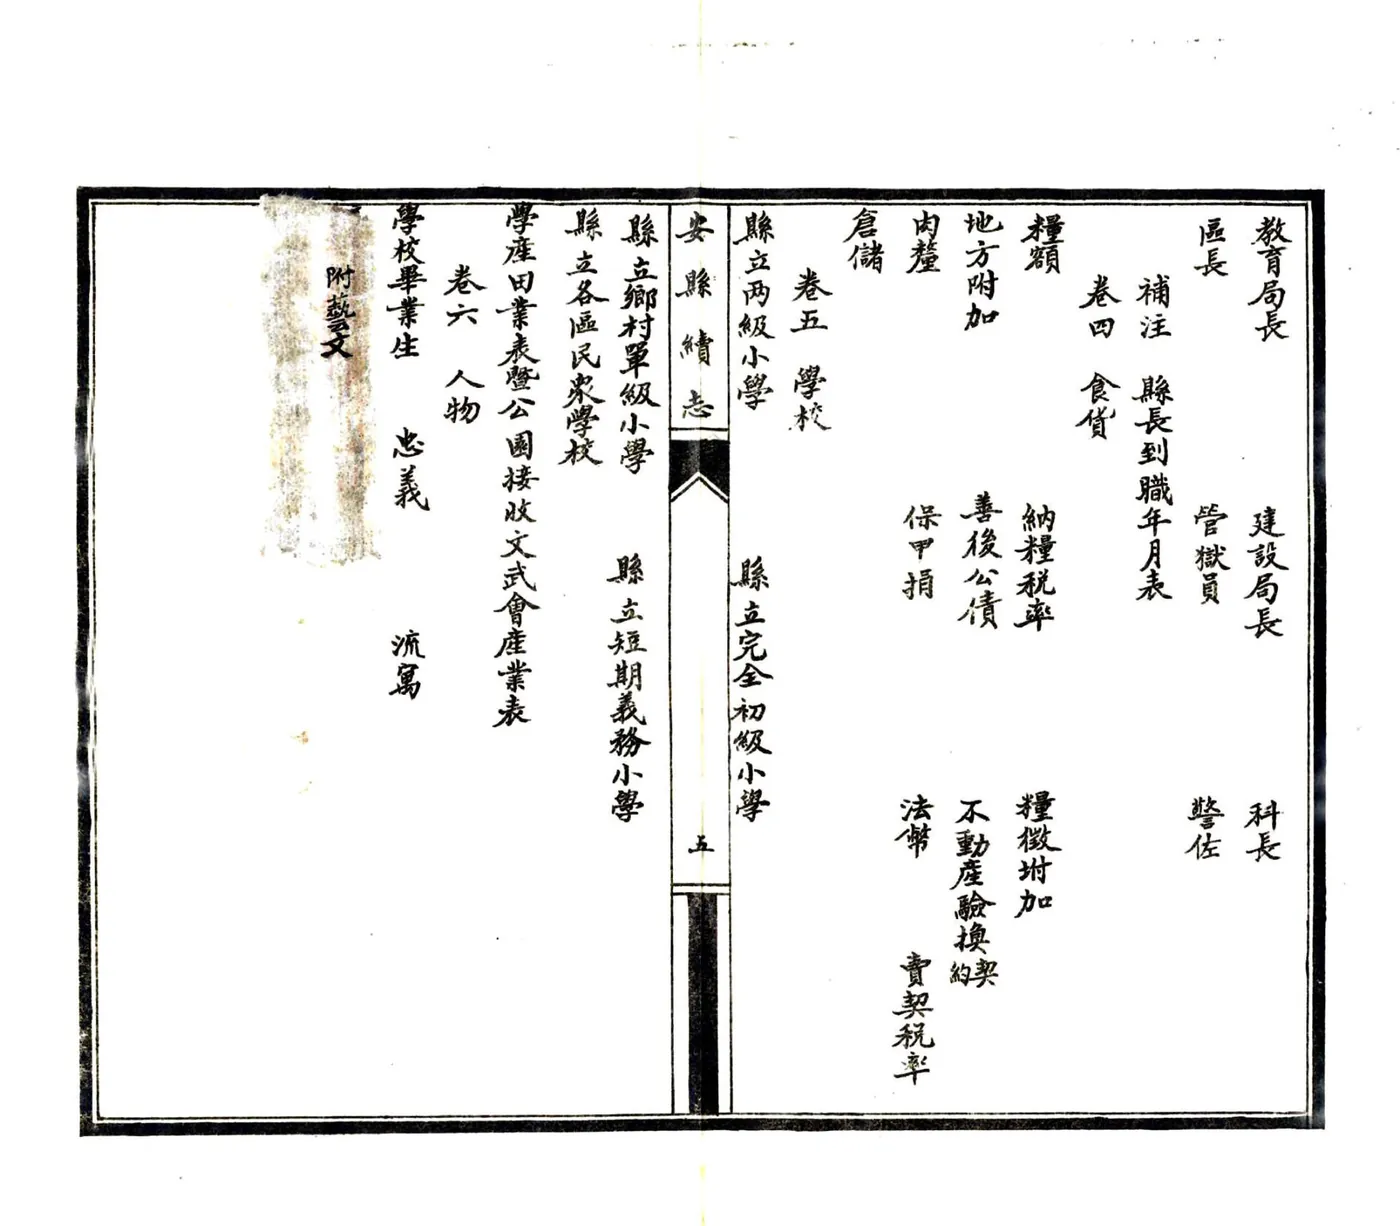 教育局長　建設局長　科長
區長　管獄員　警佐
補注　縣長到職年月表
卷四　食貨
糧額　納糧稅率　糧徵坿加
地方附加　善後公債　不動產驗換契約
肉釐　保甲捐　法幣　賣契稅率
倉儲
卷五　學校
縣立两級小學　縣立完全初級小學
安縣續志
五
縣立鄉村單級小學　縣立短期義務小學
縣立各區民眾學校
學產田業表暨公園接收文武會產業表
卷六　人物
學校畢業生　忠義　流寓
附藝文